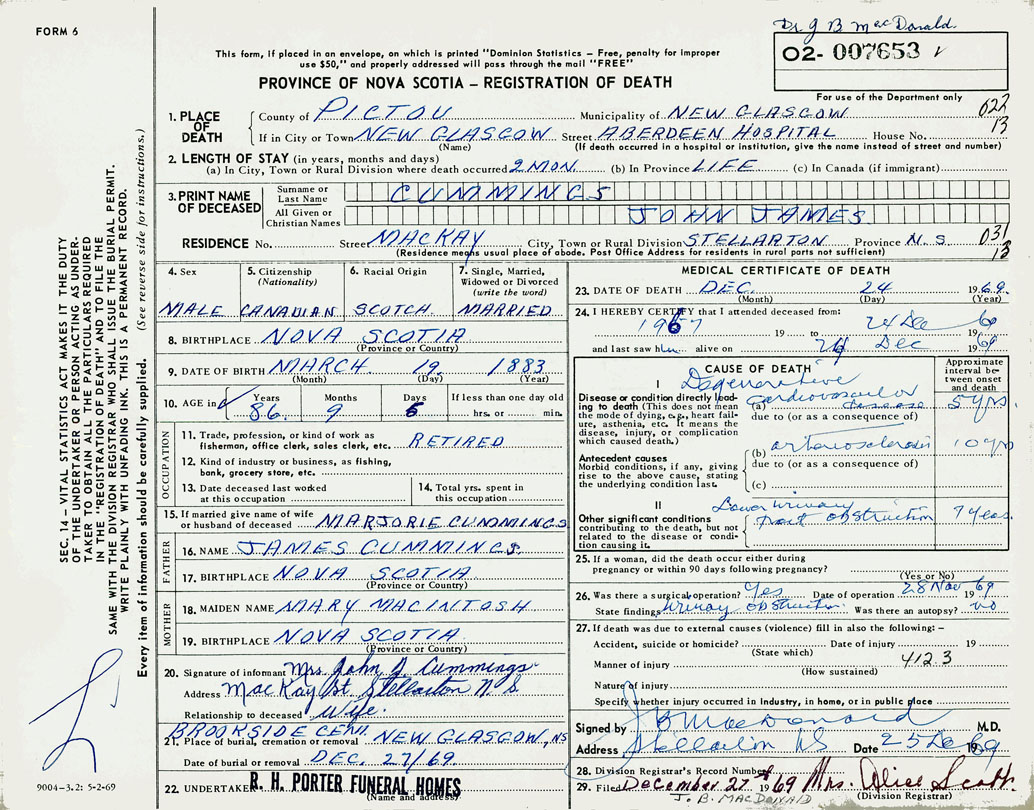 FORM 6
Dr. J B MacDonald
02- 007653
For use of the Department only
This form, if placed in an envelope, on which is printed "Dominion Statistics – Free, penalty for improper
use $50," and properly addressed will pass through the mail "FREE"
PROVINCE OF NOVA SCOTIA – REGISTRATION OF DEATH
1. PLACE OF DEATH
County of PICTOU Municipality of NEW GLASGOW 022
If in City or Town NEW GLASGOW Street ABERDEEN HOSPITAL House No. 13
(Name) (If death occurred in a hospital or institution, give the name instead of street and number)
2. LENGTH OF STAY (in years, months and days)
(a) In City, Town or Rural Division where death occurred 2 MON. (b) In Province LIFE (c) In Canada (if immigrant)
3. PRINT NAME OF DECEASED
Surname or Last Name CUMMINGS
All Given or Christian Names JOHN JAMES
RESIDENCE No. Street MACKAY City, Town or Rural Division STELLARTON Province N. S 031
(Residence means usual place of abode. Post Office Address for residents in rural parts not sufficient) 13
4. Sex MALE
5. Citizenship (Nationality) CANADIAN
6. Racial Origin SCOTCH
7. Single, Married, Widowed or Divorced (write the word) MARRIED
8. BIRTHPLACE NOVA SCOTIA
(Province or Country)
9. DATE OF BIRTH MARCH 19 1883
(Month) (Day) (Year)
10. AGE in Years 86. Months 9 Days 5 If less than one day old hrs. or min.
OCCUPATION
11. Trade, profession, or kind of work as
fisherman, office clerk, sales clerk, etc. RETIRED
12. Kind of industry or business, as fishing,
bank, grocery store, etc.
13. Date deceased last worked
at this occupation
14. Total yrs. spent in
this occupation
15. If married give name of wife
or husband of deceased MARJORIE CUMMINGS
FATHER
16. NAME JAMES CUMMINGS
17. BIRTHPLACE NOVA SCOTIA
(Province or Country)
MOTHER
18. MAIDEN NAME MARY MACINTOSH
19. BIRTHPLACE NOVA SCOTIA
(Province or Country)
20. Signature of informant Mrs. John J Cummings
Address MacKay St. Stellarton N S
Relationship to deceased Wife.
BROOKSIDE CEM.
21. Place of burial, cremation or removal NEW GLASGOW, NS
Date of burial or removal DEC. 27/69.
22. UNDERTAKER R. H. PORTER FUNERAL HOMES
(Name and address)
MEDICAL CERTIFICATE OF DEATH
23. DATE OF DEATH DEC. 24 1969.
(Month) (Day) (Year)
24. I HEREBY CERTIFY that I attended deceased from:
1967 19 to 24 Dec 1969
and last saw him alive on 24 Dec 1969
CAUSE OF DEATH
Approximate interval between onset and death
I
Disease or condition directly leading to death (This does not mean the mode of dying, e.g., heart failure, asthenia, etc. It means the disease, injury, or complication which caused death.)
Degenerative
(a) cardiovascular disease 5 yrs
due to (or as a consequence of)
Antecedent causes
Morbid conditions, if any, giving rise to the above cause, stating the underlying condition last.
(b) arteriosclerosis 10 yrs
due to (or as a consequence of)
(c)
II
Other significant conditions contributing to the death, but not related to the disease or condition causing it.
Lower urinary
tract obstruction 7 years
25. If a woman, did the death occur either during
pregnancy or within 90 days following pregnancy?
(Yes or No)
26. Was there a surgical operation? Yes Date of operation 28 Nov 1969
State findings Urinary obstruction Was there an autopsy? no
27. If death was due to external causes (violence) fill in also the following: –
Accident, suicide or homicide? Date of injury 19
(State which)
Manner of injury 412.3
(How sustained)
Nature of injury
Specify whether injury occurred in industry, in home, or in public place
Signed by J B MacDonald M.D.
Address Stellarton NS Date 25 Dec 1969
28. Division Registrar's Record Number
29. Filed December 27th 1969 Mrs. Alice Scott
J. B. MACDONALD (Division Registrar)
SEC. 14 – VITAL STATISTICS ACT MAKES IT THE DUTY
OF THE UNDERTAKER OR PERSON ACTING AS UNDER-
TAKER TO OBTAIN ALL THE PARTICULARS REQUIRED
IN THE "REGISTRATION OF DEATH" AND TO FILE THE
SAME WITH THE DIVISION REGISTRAR WHO SHALL ISSUE THE BURIAL PERMIT.
WRITE PLAINLY WITH UNFADING INK. THIS IS A PERMANENT RECORD.
Every item of information should be carefully supplied. (See reverse side for instructions.)
9004-3.2: 5-2-69